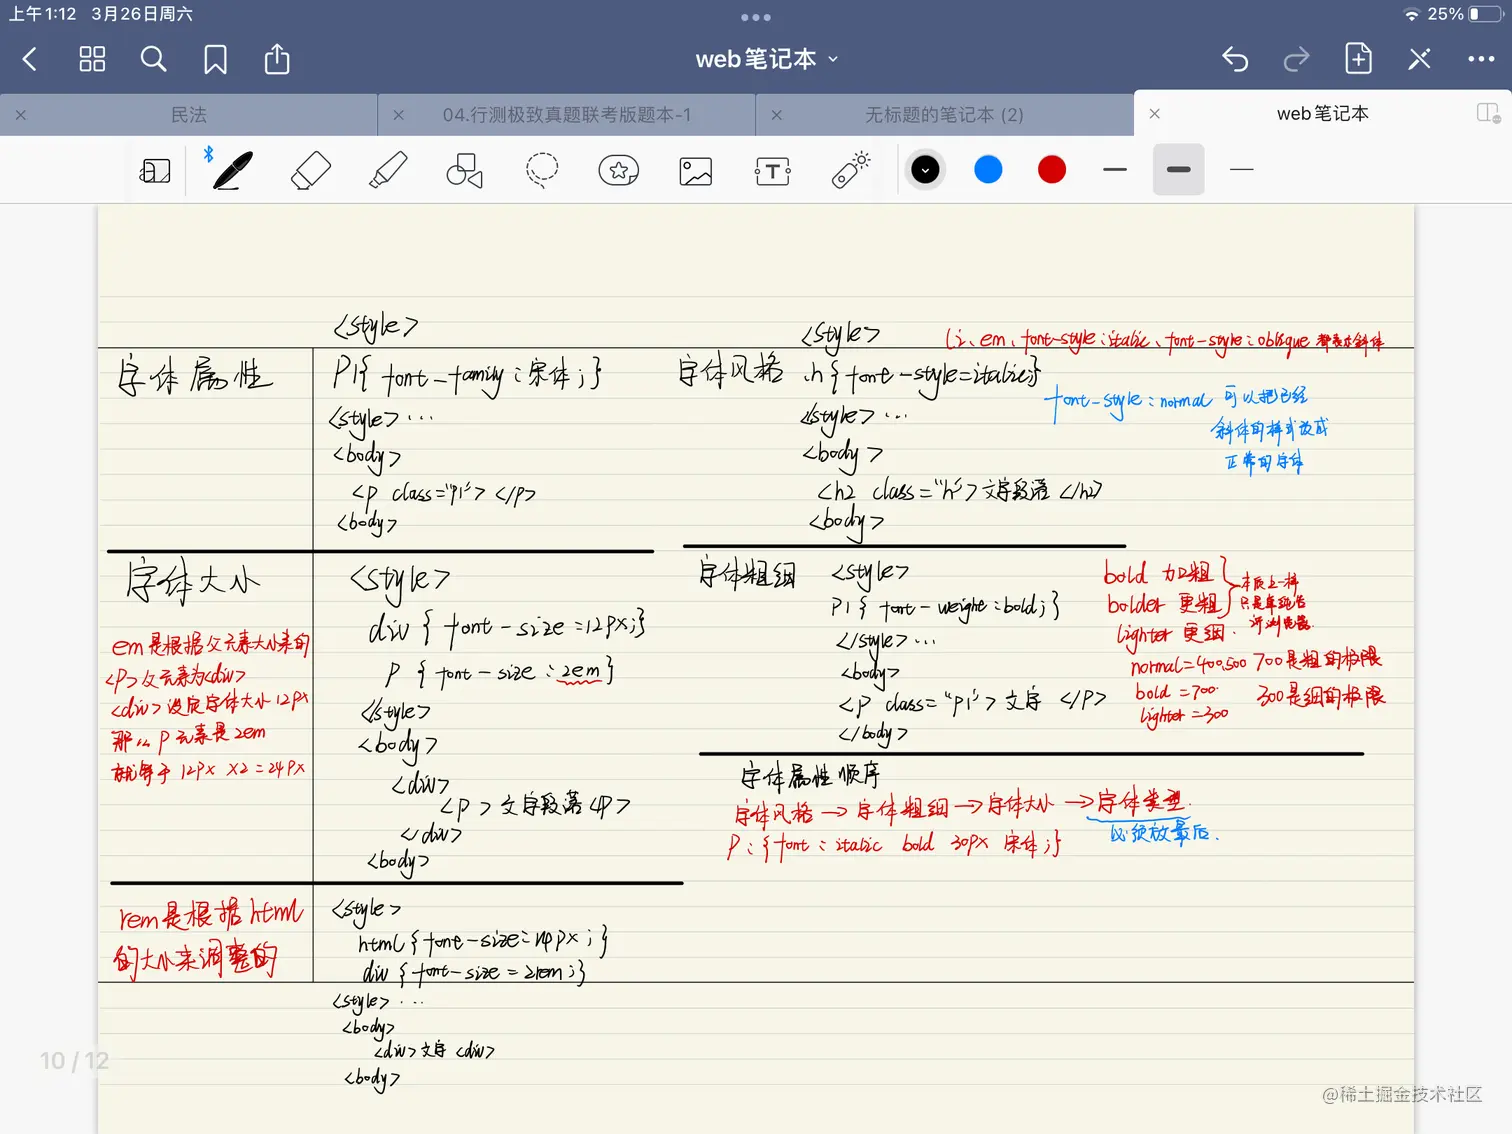 上午1:12 3月26日周六
25%
web笔记本
民法
04.行测极致真题联考版题本-1
无标题的笔记本 (2)
web笔记本
<style>
字体属性
P1{ font-family:宋体;}
<style>...
<body>
<p class="p1"> </p>
<body>
字体大小
<style>
div { font-size=12px;}
P { font-size:2em}
</style>
<body>
<div>
<p>文字段落<p>
</div>
<body>
em是根据父元素大小来的
<P>父元素为<div>
<div>设定字体大小12px
那么P元素是2em
就等于12px X2=24px
rem是根据html
的大小来调整的
<style>
html{font-size:14px;}
div {font-size=2rem;}
<style>...
<body>
<div>文字<div>
<body>
<style>
(i、em、font-style:italic、font-style:oblique 都表示斜体
字体风格
.h{font-style=italic;}
<style>...
<body>
<h2 class="h">文字段落</h2>
<body>
font-style:normal 可以把已经
斜体的样式改成
正常的字体
字体粗细
<style>
P1{ font-weight:bold;}
</style>...
<body>
<p class="p1">文字 </P>
</body>
bold 加粗
bolder 更粗
lighter 更细.
本质上一样
只是
浏览器
normal=400,500 700是粗的极限
bold=700. 300是细的极限
lighter=300
字体属性顺序
字体风格→字体粗细→字体大小→字体类型.
必须放最后.
P:{font:italic bold 30px 宋体;}
10 / 12
@稀土掘金技术社区